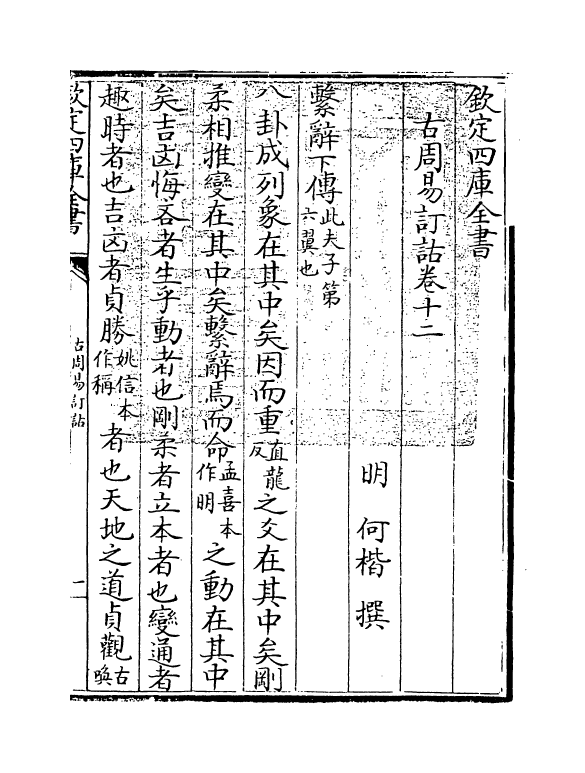 欽定四庫全書
古周易訂詁卷十二
明 何楷 撰
繫辭下傳此夫子第六翼也
八卦成列象在其中矣因而重直龍反之爻在其中矣剛
柔相推變在其中矣繫辭焉而命孟喜本作明之動在其中
矣吉凶悔吝者生乎動者也剛柔者立本者也變通者
趣時者也吉凶者貞勝姚信本作稱者也天地之道貞觀古喚
欽定四庫全書
古周易訂詁